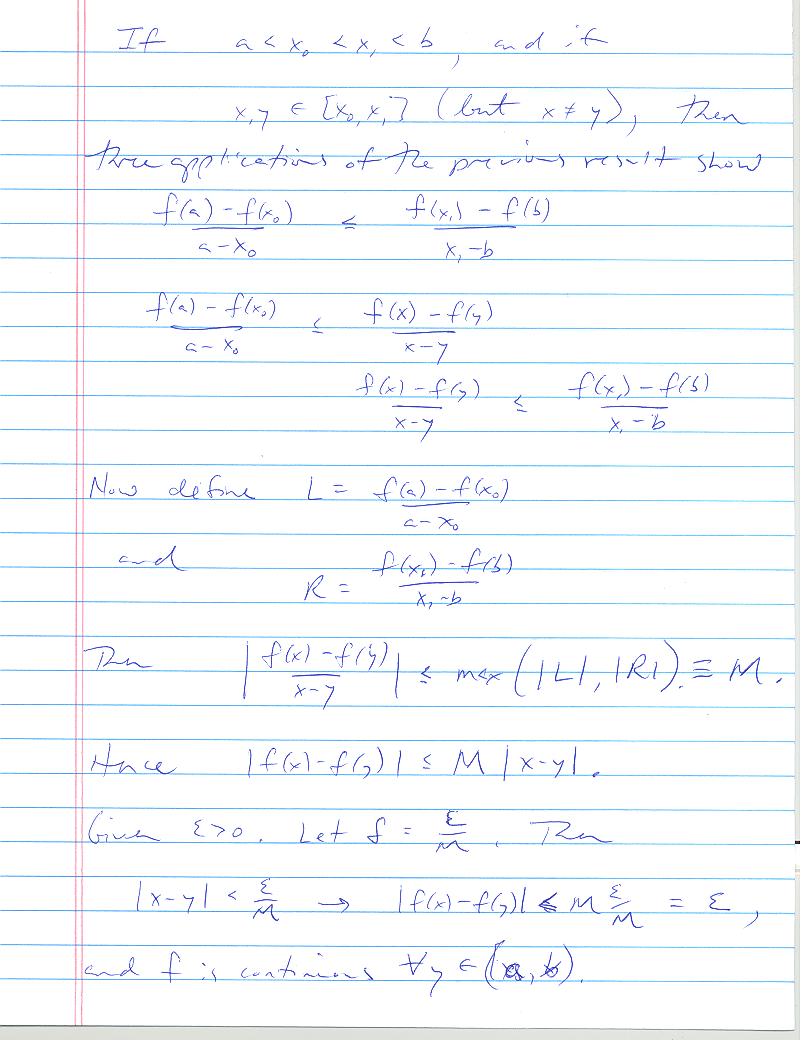 If a < x₀ < x₁ < b, and if
x,y ∈ [x₀,x₁] (but x ≠ y), then
three applications of the previous result show
(f(a) – f(x₀))/(a – x₀) ≤ (f(x₁) – f(b))/(x₁ – b)
(f(a) – f(x₀))/(a – x₀) ≤ (f(x) – f(y))/(x – y)
(f(x) – f(y))/(x – y) ≤ (f(x₁) – f(b))/(x₁ – b)
Now define L = (f(a) – f(x₀))/(a – x₀)
and R = (f(x₁) – f(b))/(x₁ – b)
Then |(f(x) – f(y))/(x – y)| ≤ max(|L|, |R|). ≡ M.
Hence |f(x) – f(y)| ≤ M |x – y|.
Given ε > 0. Let δ = ε/M. Then
|x – y| < ε/M → |f(x) – f(y)| ≤ M ε/M = ε,
and f is continuous ∀y ∈ (a, b).